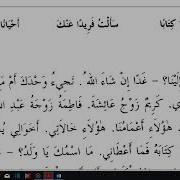 كِتَابًا سَأَلْتُ فَرِيدًا عَنْكَ أَحْيَانًا
إِلَيْنَا؟ – غَدًا إِنْ شَاءَ اللهُ. تَجِيءُ وَحْدَكَ أَمْ مَعَ
كَرِيمٌ زَوْجُ عَائِشَةَ. فَاطِمَةُ زَوْجَةُ عَبْدِ
هَؤُلَاءِ أَعْمَامُنَا. هَؤُلَاءِ خَالَاتِي. أَخْوَالِي
كِتَابَهُ فَمَا أَعْطَانِي. مَا اسْمُكَ يَا وَلَدُ؟